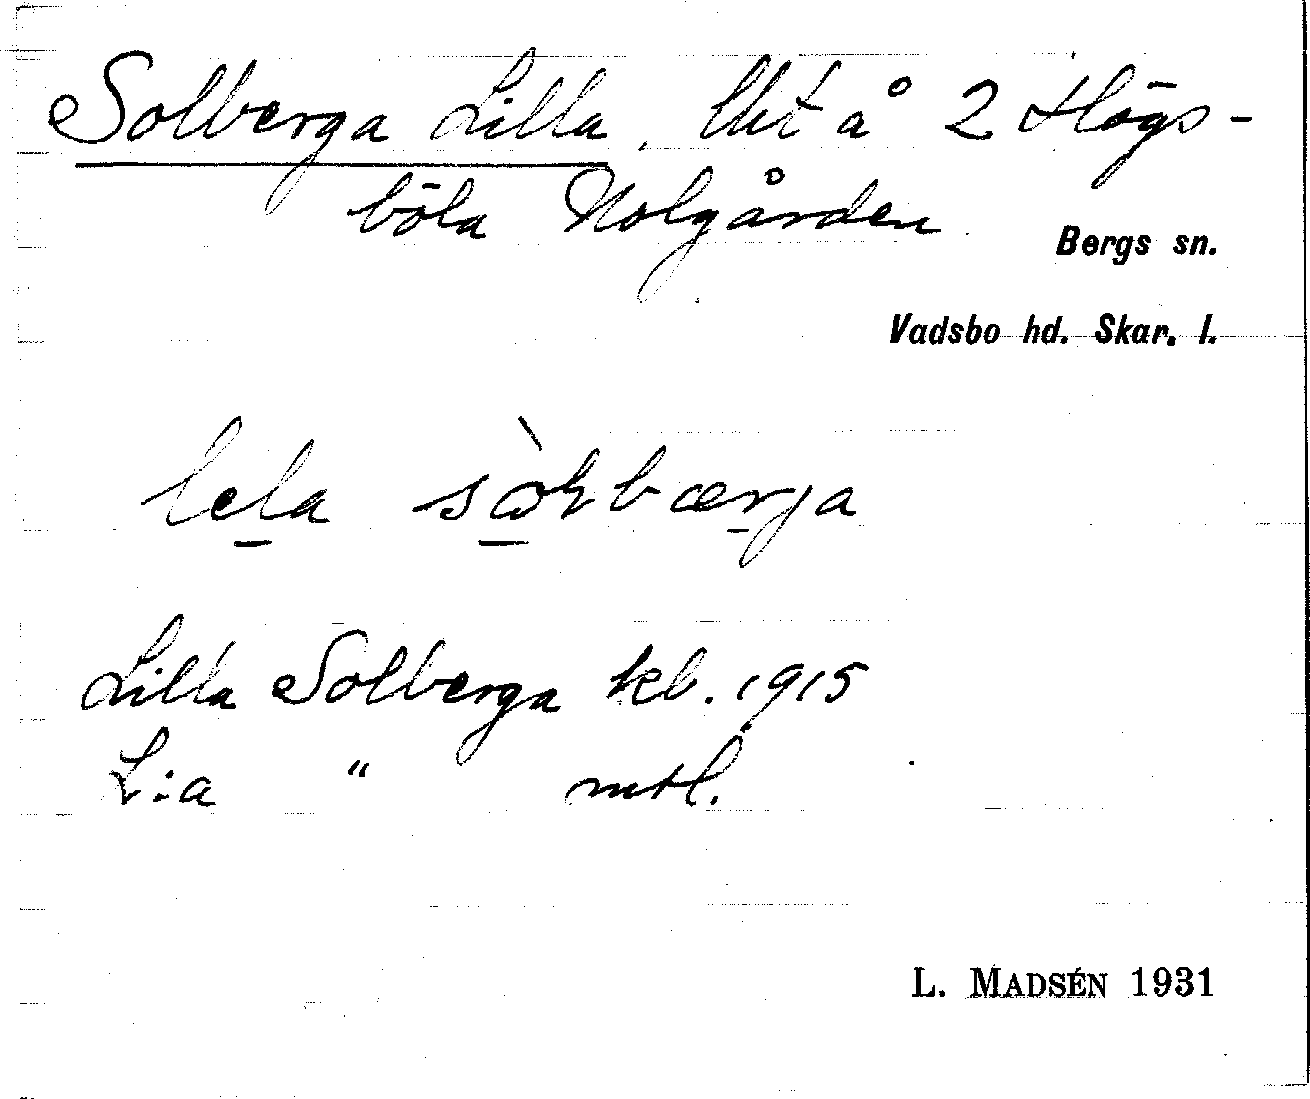 Solberga Lilla, lht å 2 Högs-
böla Nolgården
Bergs sn.
Vadsbo hd. Skar. l.
lela
Lilla Solberga kb. 1915
L:a " mtl.
L. MADSÉN 1931